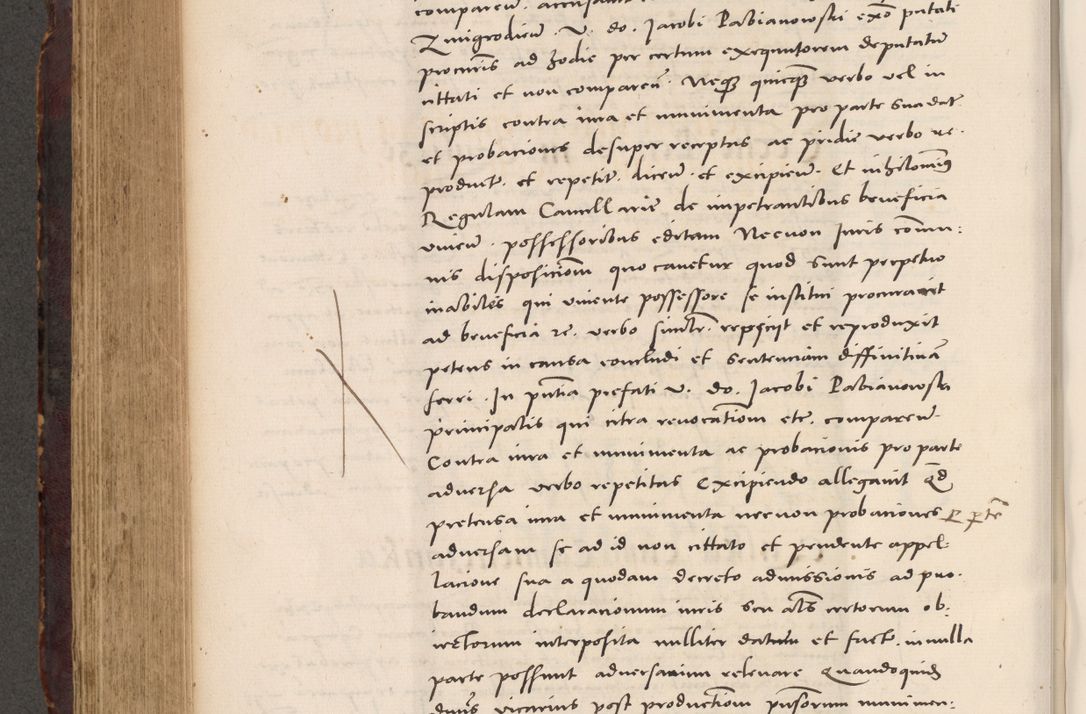 Zmigrodien̄ . V. do. Jacobi Pabianowski exō putati
procur̄is ad hodie per certum exequutorem deputatū
cittati et non comparen̄. Neqȝ quicqȝ verbo vel in
scriptis contra iura et munimenta pro parte sua dat̄
et probaciones desuper receptas ac pridie verbo re.
product. et repetit. dicen̄. et excipien̄. Et nihilominȝ
Regulam Cancellarie de impetrantibus beneficia
viven̄. possessoribus editam Necnon Juris com̄u:
nis disposicionem quo cavetur quod sunt perpetuo
inabiles qui vivente possessore se institui procuravit
ad beneficia re. verbo similr̄. repeciit et reproduxit
petens in causa concludi et sentenciam diffinitivam
ferri. In pñtia prefati v. do. Jacobi Pabianowski
principalis qui citra revocationem etc. comparen̄.
Contra iura et munimenta ac probacionis pro parte
adversa verbo repetitas Excipiendo allegavit Qd
pretensa iura et munimenta necnon probaciones P ptē
adversam se ad id non cittato et pendente appel:
lacione sua a quodam decreto admissionis ad pro.
bandum declaracionum iuris seu actis certorum ob:
iectorum interposita nulliter datum et facto. in nulla
parte possunt adversarium relevare Quandoquidē
dn̄us vicarius post productionem pn̄sorum munimen: